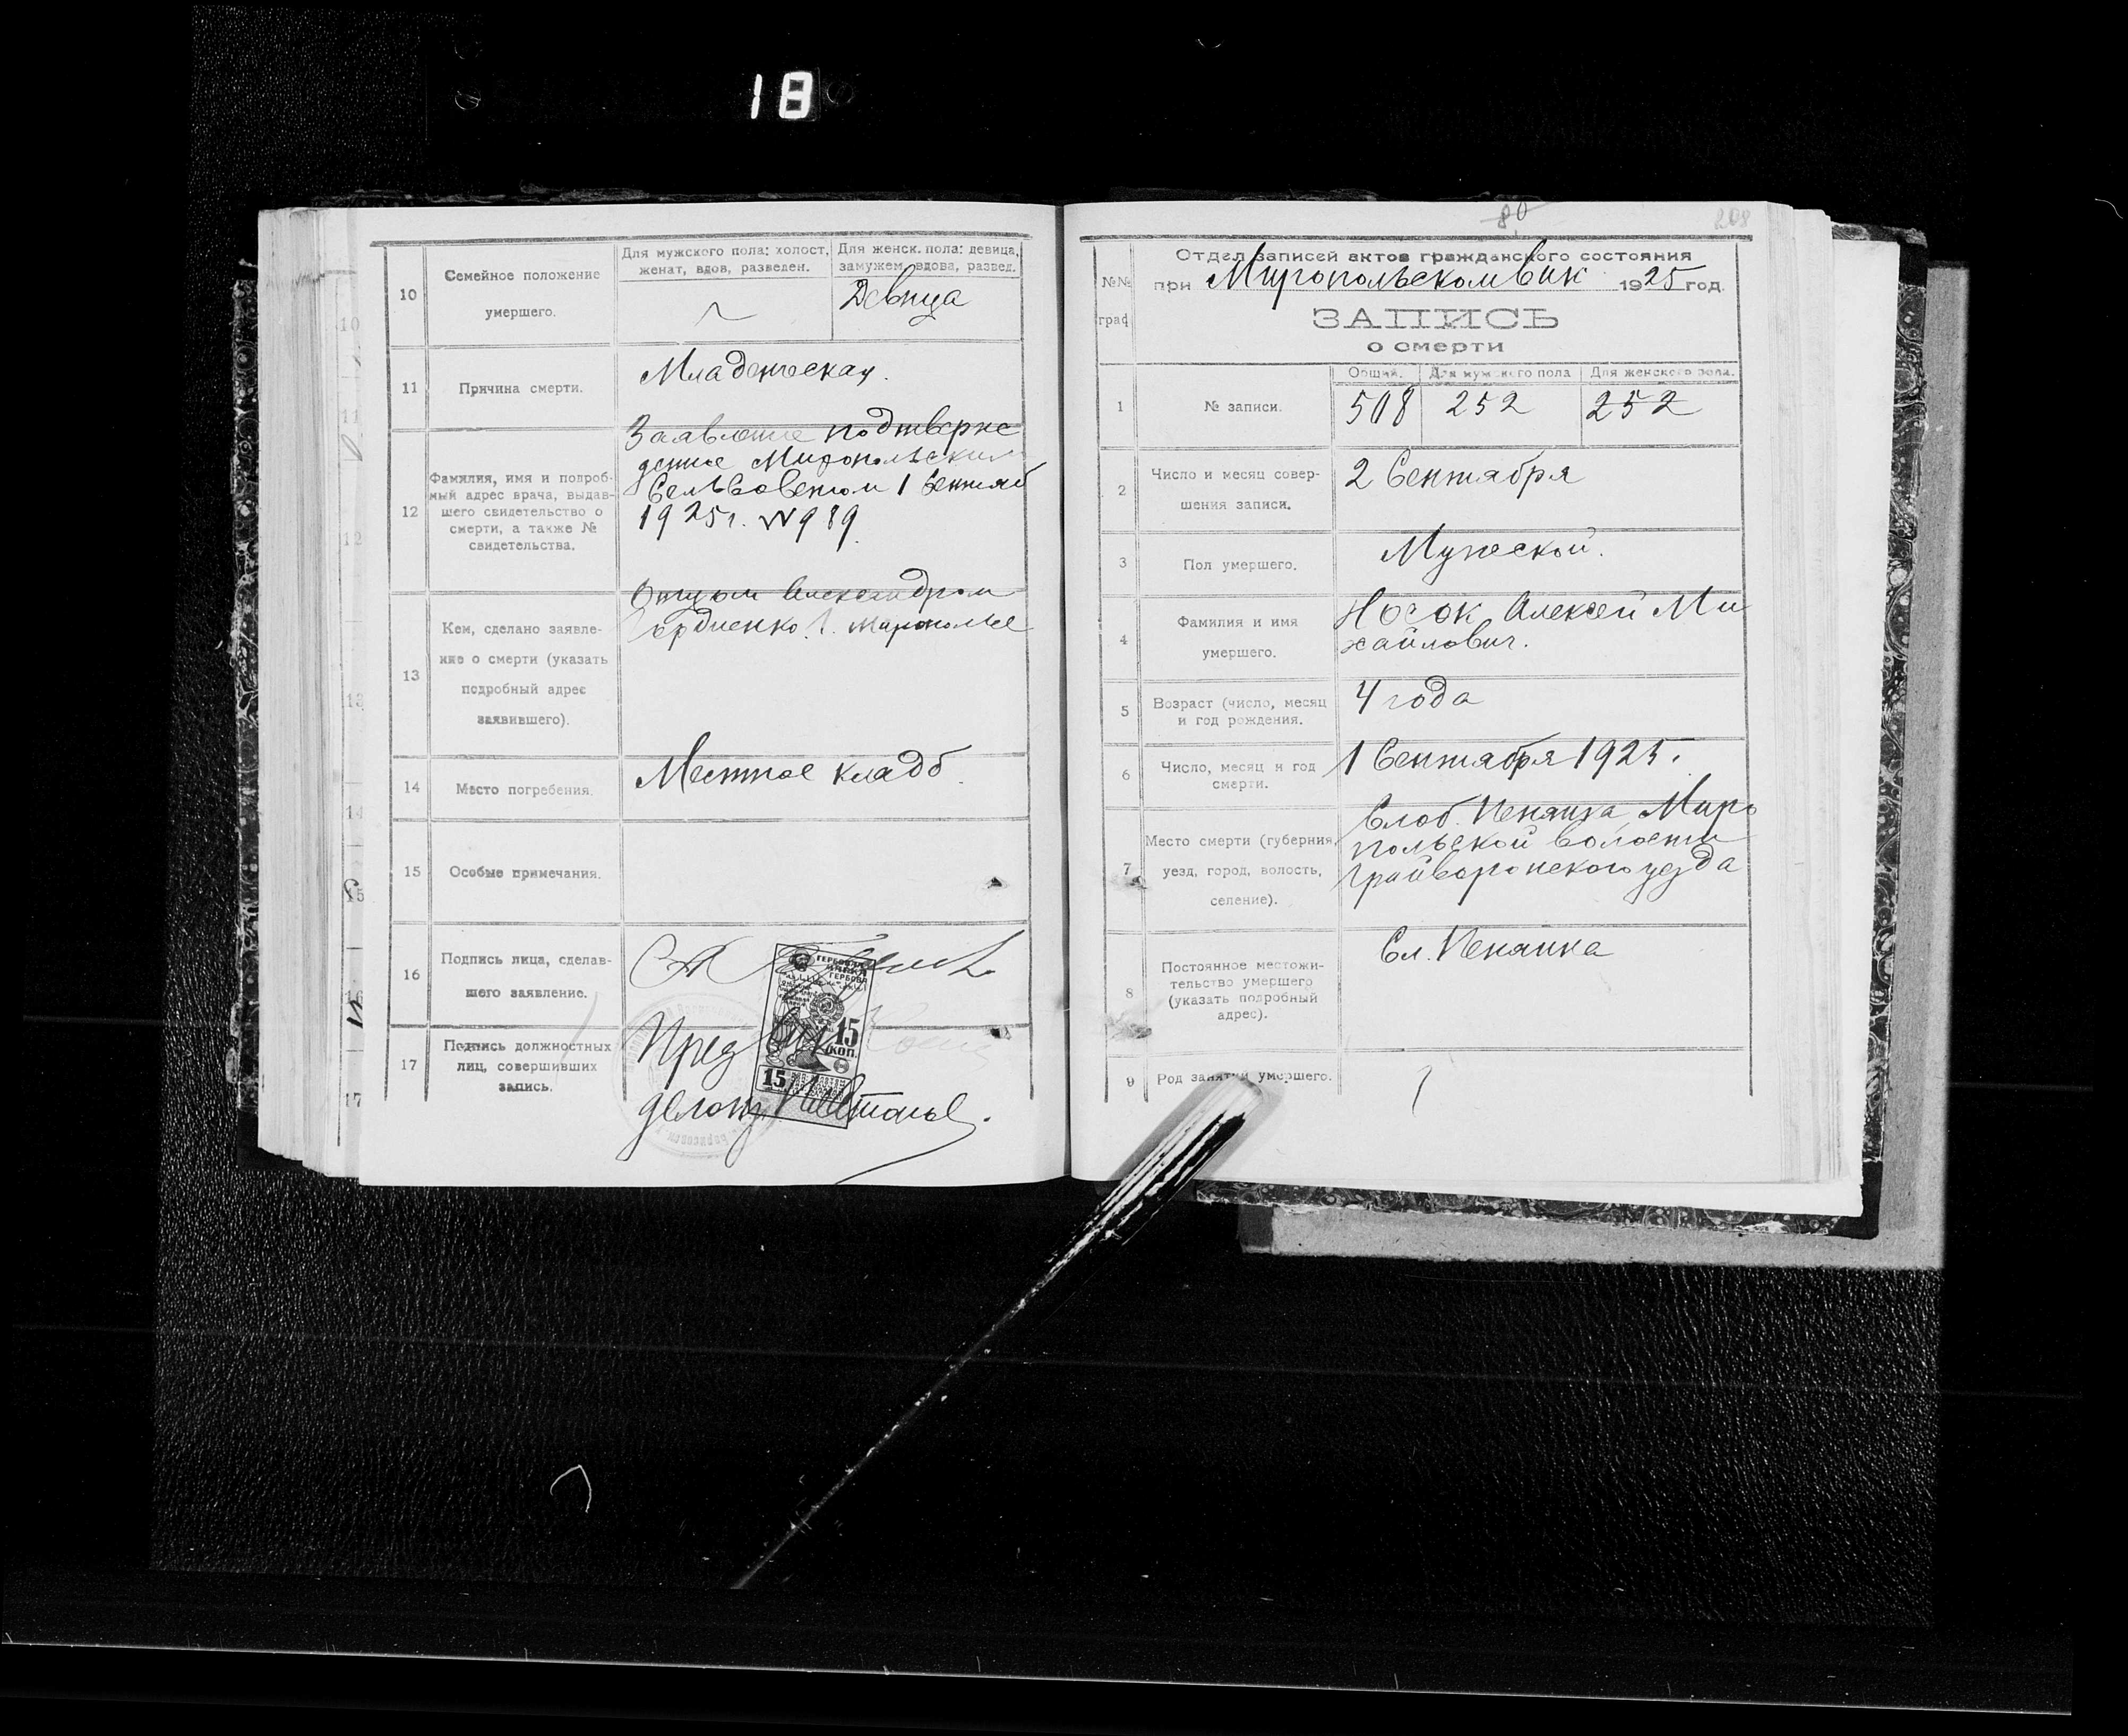 18
10
Семейное положение
умершего.
Для мужского пола: холост,
женат, вдов, разведен.
Для женск. пола: девица,
замужем, вдова, развед.
Девица
11
Причина смерти.
Младенческая.
12
Фамилия, имя и подроб-
ный адрес врача, выдав-
шего свидетельство о
смерти, а также №
свидетельства.
Заявление подтверж
денное Миропольским
Сельсоветом 1 Сентяб
1925 г. № 989.
13
Кем, сделано заявле-
ние о смерти (указать
подробный адрес
заявившего).
Отцом Александром
Гордиенко г. Мирополье
14
Место погребения.
Местное кладб.
15
Особые примечания.
16
Подпись лица, сделав-
шего заявление.
ГЕРБОВАЯ
МАРКА
15
КОП.
15
17
Подпись должностных
лиц, совершивших
запись.
Пред
делопр.
80
208
№№
граф
Отдел записей актов гражданского состояния
при Миропольском Вик 1925 год.
ЗАПИСЬ
о смерти
1
№ записи.
Общий.
Для мужского пола
Для женского пола.
508
252
252
2
Число и месяц совер-
шения записи.
2 Сентября
3
Пол умершего.
Мужской.
4
Фамилия и имя
умершего.
Носок Алексей Ми
хайлович.
5
Возраст (число, месяц
и год рождения.
4 года
6
Число, месяц и год
смерти.
1 Сентября 1925.
7
Место смерти (губерния,
уезд, город, волость,
селение).
Слоб. Пенянка Миро
польской волости
Грайворонского уезда
8
Постоянное местожи-
тельство умершего
(указать подробный
адрес).
Сл. Пенянка
9
Род занятий умершего.